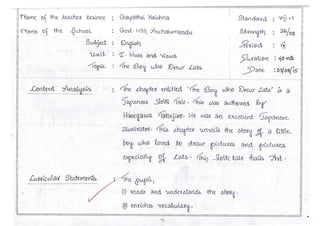 Name of the teacher trainee : Gayathri Krishna Standard : VIII - I
Name of the School : Govt HSS, Anchalumoodu Strength : 36/38
Subject : English Period : IV
Unit : I - Hues and Views Duration : 40 mts
Topic : The Boy who Drew Cats Date : 03/08/15
Content Analysis : The chapter entitled 'The Boy who Drew Cats' is a
Japanese Folk Tale. This was authored by
Hasegawa He was an excellent Japanese
illustrator. This chapter unveils the story of a little
boy who loved to draw pictures and pictures
especially of Cats. This folk tale hails 'Art.
Curricular Statements : The pupil,
reads and understands the story.
enriches vocabulary.